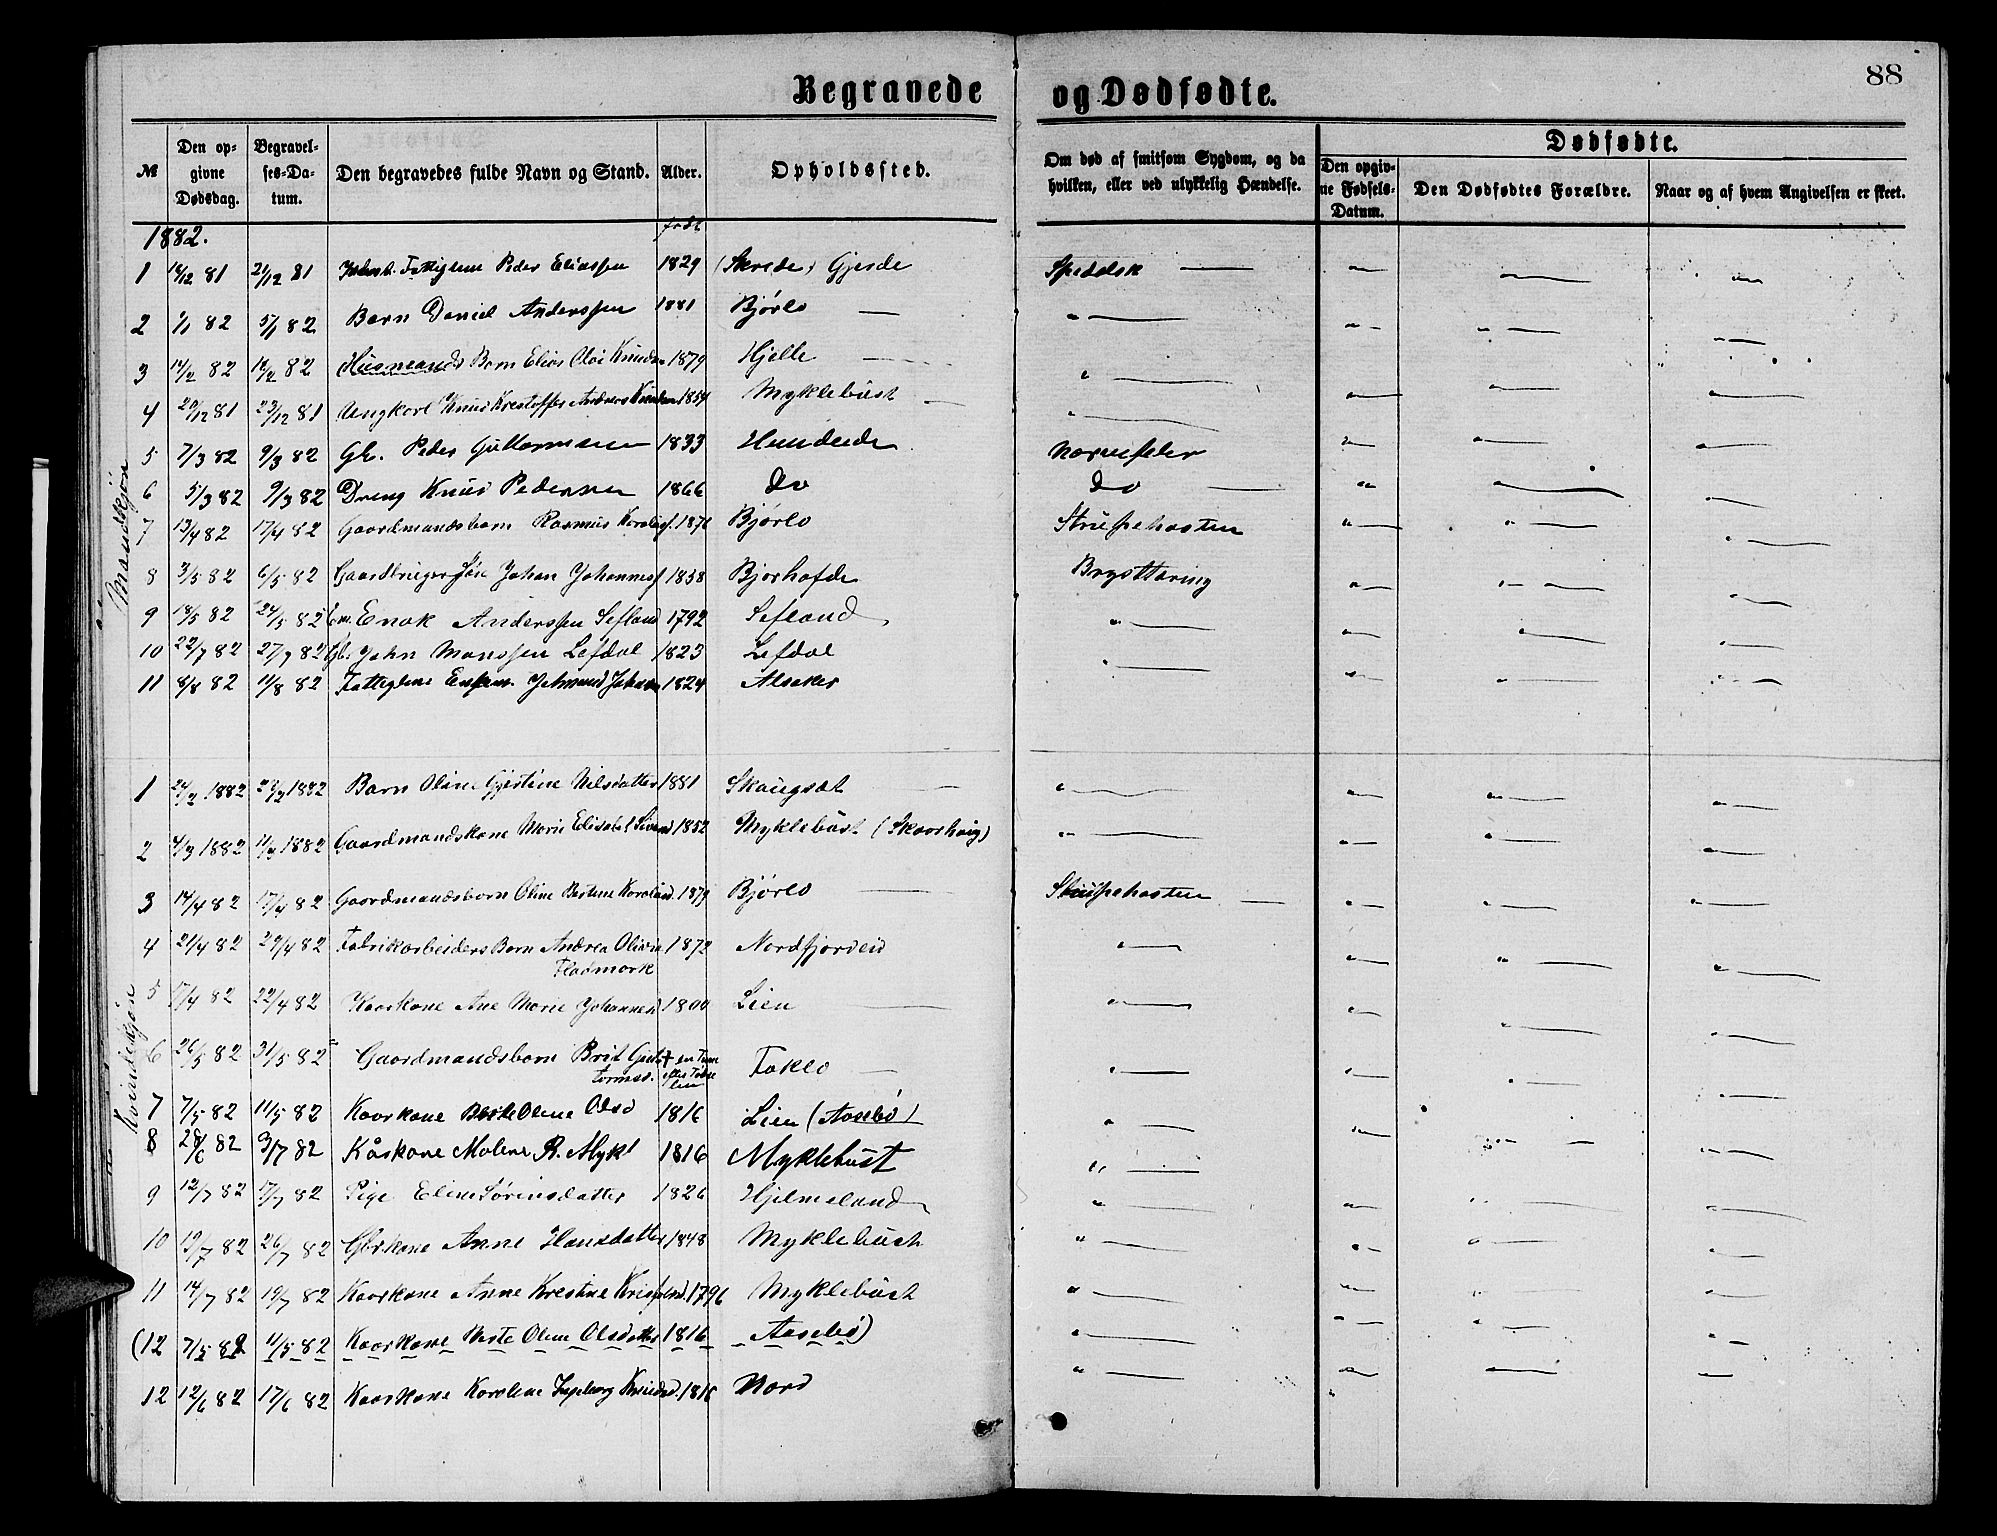 88
Begravede og Dødfødte.
№ Den opgivne Dødsdag. Begravelses-Datum. Den begravedes fulde Navn og Stand. Alder. Opholdssted. Om død af smitsom Sygdom, og da hvilken, eller ved ulykkelig Hændelse. Dødfødte. Den opgivne Fødsels-Datum. Den Dødfødtes Forældre. Naar og af hvem Angivelsen er skeet.
1882. født
Mandkjøn
1 18/12 81 21/12 81 Fattiglem Peder Eliassen 1829 (Skrede) Gjerde Spedalsk
2 1/1 82 5/1 82 Barn Daniel Anderssen 1881 Bjørlo
3 14/2 82 82 Husmands Barn Elias Olai Knudsen 1879 Hjelle
4 20/12 81 23/12 81 Ungkarl Knud Krestoffer Andreas 1859 Myklebust
5 7/3 82 9/3 82 Gb. Peder Guttormsen 1833 Hundeide Nervefeber
6 5/3 82 9/3 82 Dreng Knud Pedersen 1866 do do
7 13/4 82 17/4 82 Gaardmandsbarn Rasmus Karolius. 1876 Bjørlo Strupehosten
8 3/5 82 6/5 82 Gaardbruger Søn Johan Johannesf 1858 Bjorhofde Brysttæring
9 18/5 82 24/5 82 Enok Anderssen Sefland 1792 Sefland
10 22/7 82 27/7 82 Gb. John Monssen Lefdal 1823 Lefdal
11 8/8 82 11/8 82 Fattiglem 1824 Alsaker
Kvindekjøn
1 24/2 1882 1882 Barn Oline Gjertine Nilsdatter 1881 Skaugsæt
2 4/3 1882 11/3 1882 Gaardmandskone Marie Elisabet 1852 Myklebust (Skaarhaug)
3 14/4 82 17/4 82 Gaardmandsbarn Oline Bertine Karolusd. 1879 Bjørlo Strupehosten
4 21/4 82 29/4 82 Fabrikarbeiders Barn Andrea Olivia 1872 Nordfjordeid
Flodmork
5 17/4 82 22/4 82 Kaarkone Ane Marie Johannesd 1800 Lien
6 26/5 82 31/5 82 Gaardmandsbarn Brit Gut- + en Time Foklo
tormsd. efter Fødselen
7 7/5 82 11/5 82 Kaarkone Berte Oline Olsd 1816 Lien (Aasebø)
8 28/6 82 3/7 82 Kåskone Malene R. Mykl 1816 Myklebust
9 12/7 82 17/7 82 Pige Eline Sørinsdatter 1826 Hjelmeland
10 19/7 82 26/7 82 Gbrkone Anne Hansdatter 1848 Myklebust
11 14/7 82 19/7 82 Kaarkone Anne Krestine 1796 Myklebust
(12 7/5 82 11/5 82 Kaarkone Berte Oline Olsdatter 1816 Aasebø)
12 12/6 82 17/6 82 Kaarkone Karoline Ingeborg Knudsd. 1816 Nord